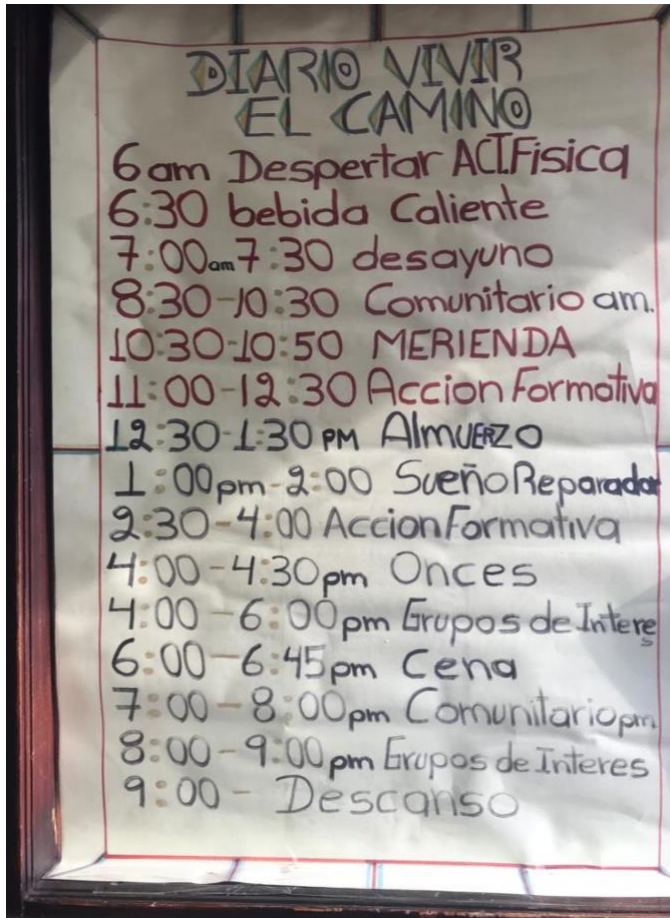 DIARIO VIVIR
EL CAMINO
6am Despertar ACT.Fisica
6:30 bebida Caliente
7:00am 7:30 desayuno
8:30-10:30 Comunitario am.
10:30-10:50 MERIENDA
11:00-12:30 Accion Formativa
12:30-1:30 PM AlmuERZO
1:00pm-2:00 Sueño Reparador
2:30-4:00 Accion Formativa
4:00-4:30pm Onces
4:00-6:00pm Grupos de Interes
6:00-6:45pm Cena
7:00-8:00pm Comunitario pm.
8:00-9:00pm Grupos de Interes
9:00- Descanso